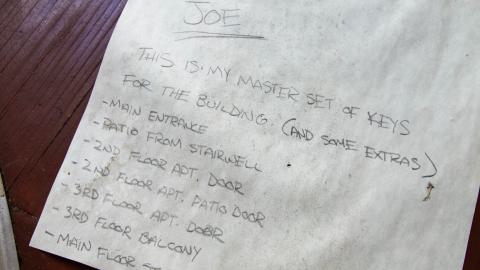 JOE
THIS IS MY MASTER SET OF KEYS
FOR THE BUILDING. (AND SOME EXTRAS)
- MAIN ENTRANCE
- PATIO FROM STAIRWELL
- 2ND FLOOR APT. DOOR
- 2ND FLOOR APT. PATIO DOOR
- 3RD FLOOR APT. DOOR
- 3RD FLOOR BALCONY
- MAIN FLOOR